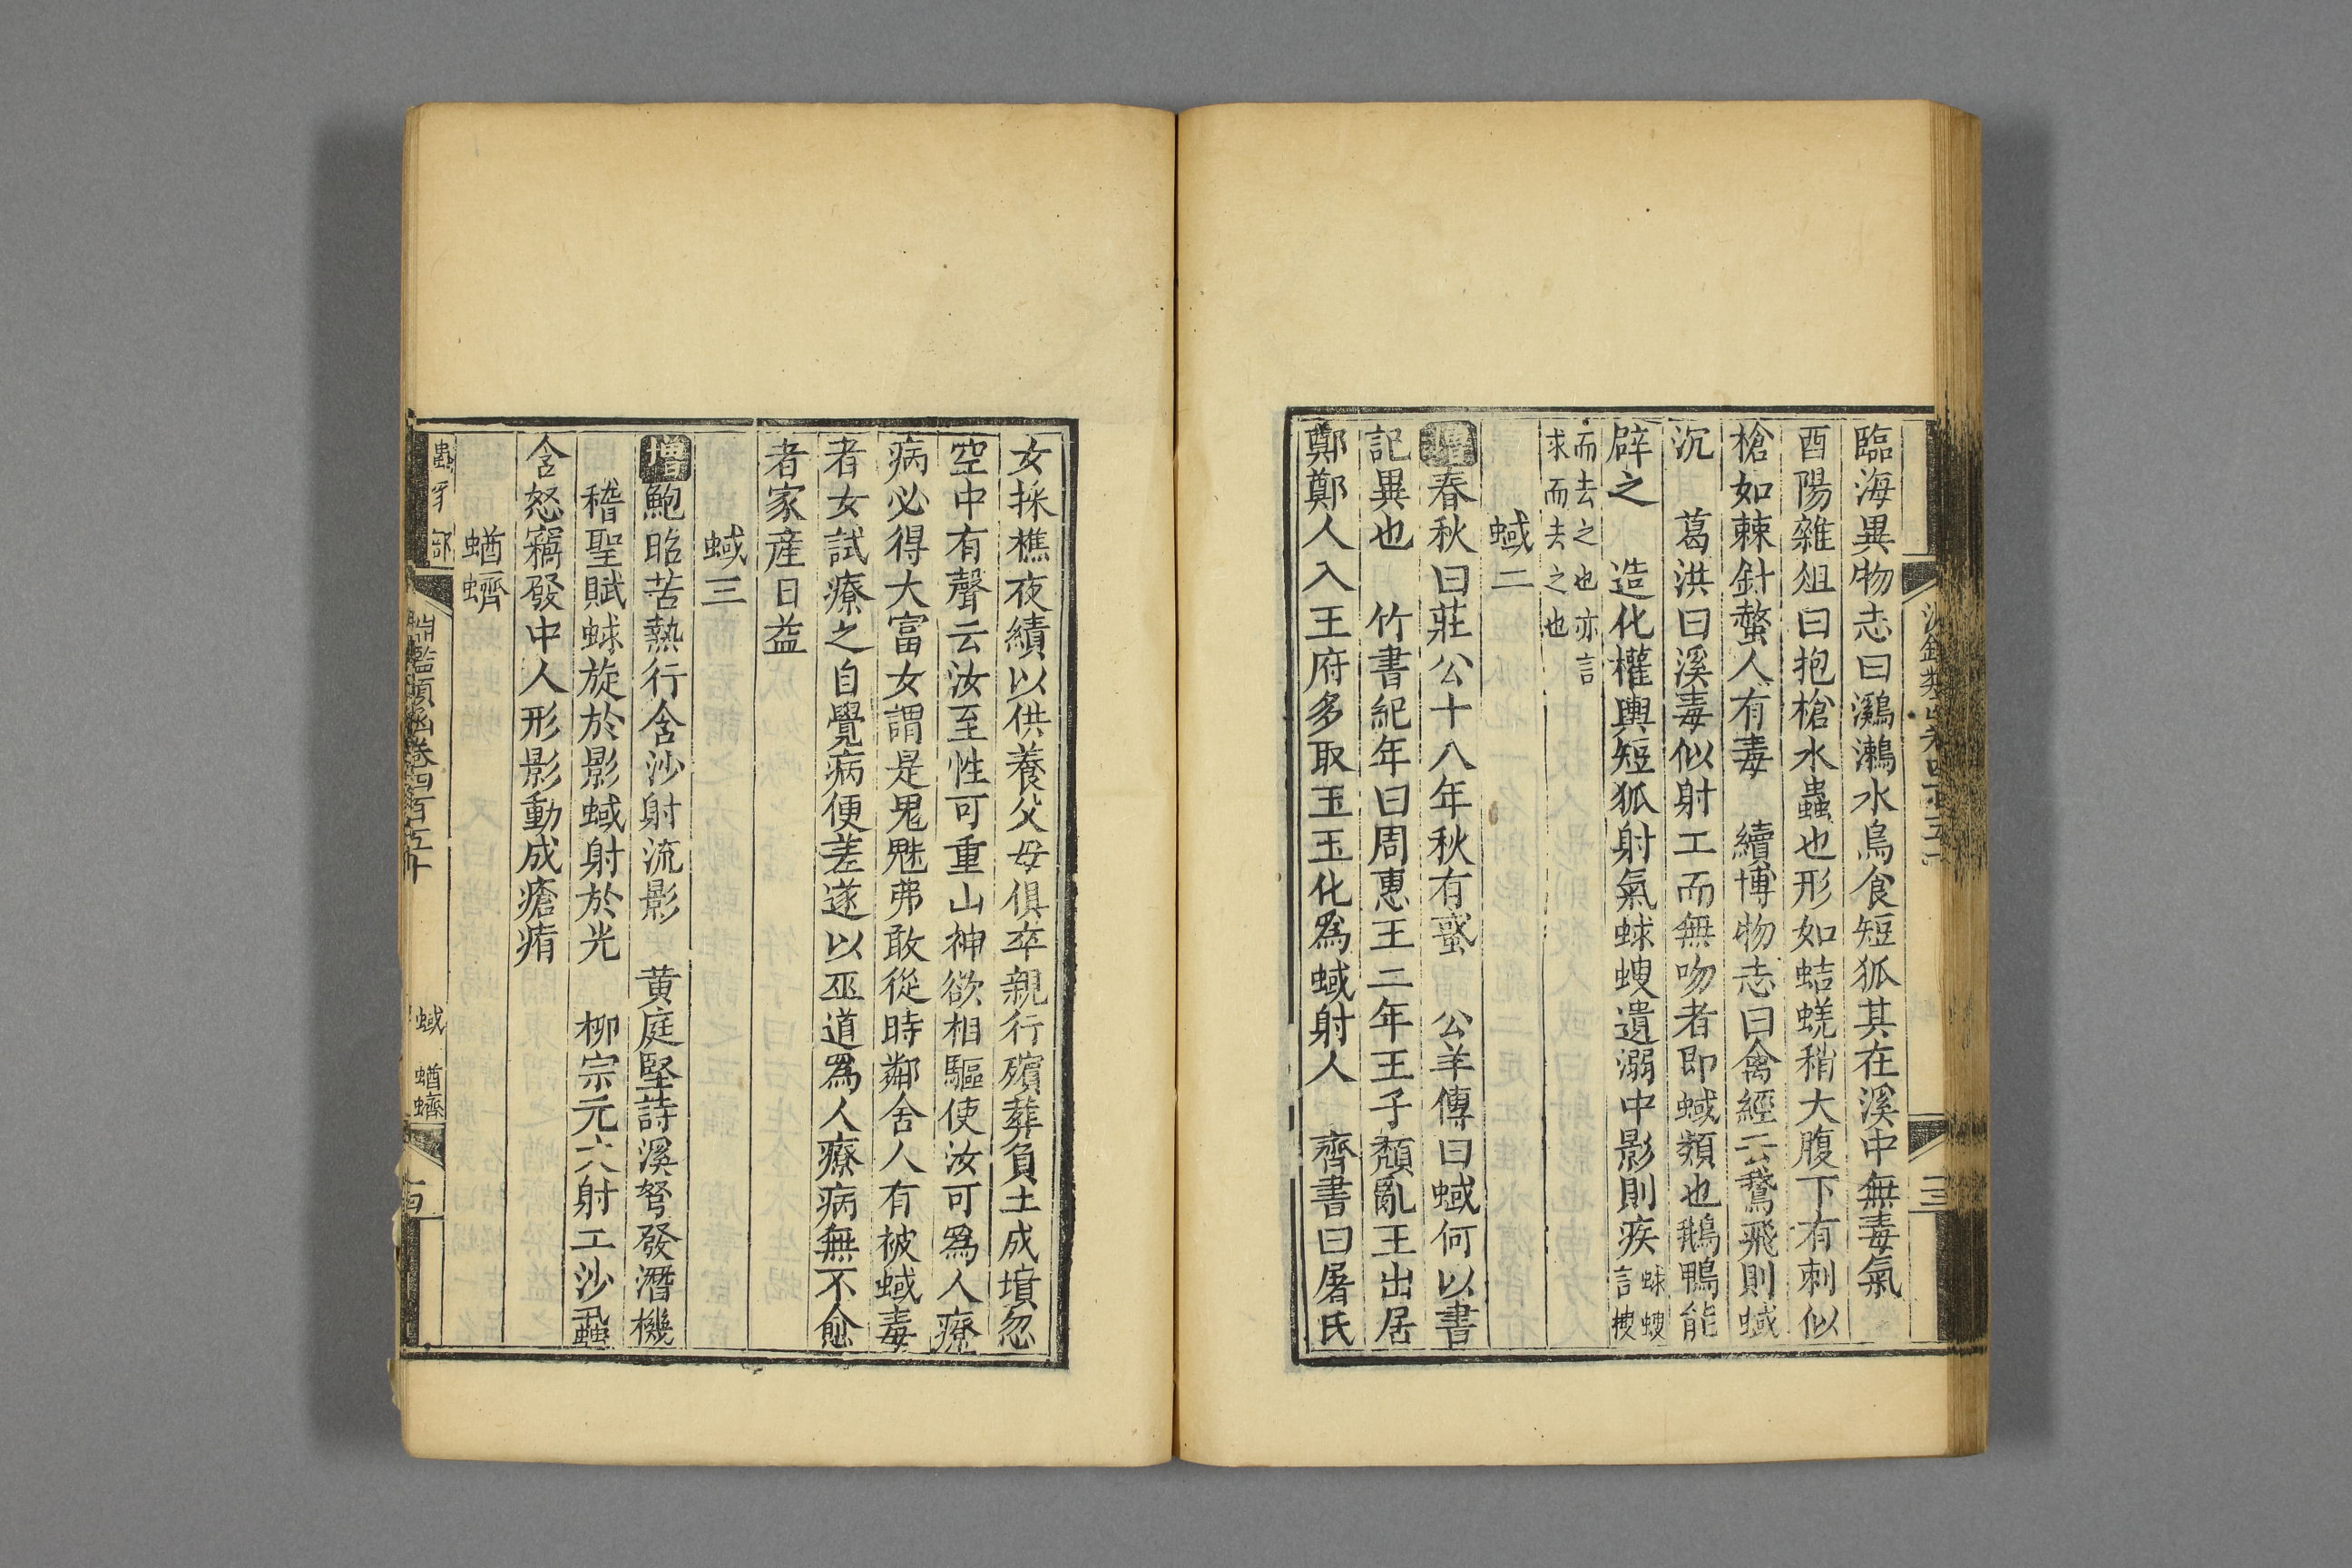 臨海異物志曰鸂鷘水鳥食短狐其在溪中無毒氣
酉陽雜俎曰抱槍水蟲也形如蛣蜣稍大腹下有刺似
槍如棘針螫人有毒　續博物志曰禽經云鵞飛則蜮
沉　葛洪曰溪毒似射工而無吻者即蜮類也鵝鴨能
辟之　造化權輿短狐射氣蛷螋遺溺中影則疾蛷螋言捜
而去之也亦言
求而去之也
蜮二
增春秋曰莊公十八年秋有蜮　公羊傳曰蜮何以書
記異也　竹書紀年曰周惠王二年王子頹亂王出居
鄭鄭人入王府多取玉玉化爲蜮射人　齊書曰屠氏
女採樵夜績以供養父母俱卒親行殯葬負土成墳忽
空中有聲云汝至性可重山神欲相驅使汝可爲人療
病必得大富女謂是鬼魅弗敢從時鄰舍人有被蜮毒
者女試療之自覺病便差遂以巫道爲人療病無不愈
者家產日益
蜮三
增鮑昭苦熱行含沙射流影　黃庭堅詩溪弩發潛機
稽聖賦蛷旋於影蜮射於光　柳宗元六射工沙蝨
含怒竊發中人形影動成瘡痏
蝤蠐
蟲豸部
淵鑑類函卷四百五十
蜮　蝤蠐